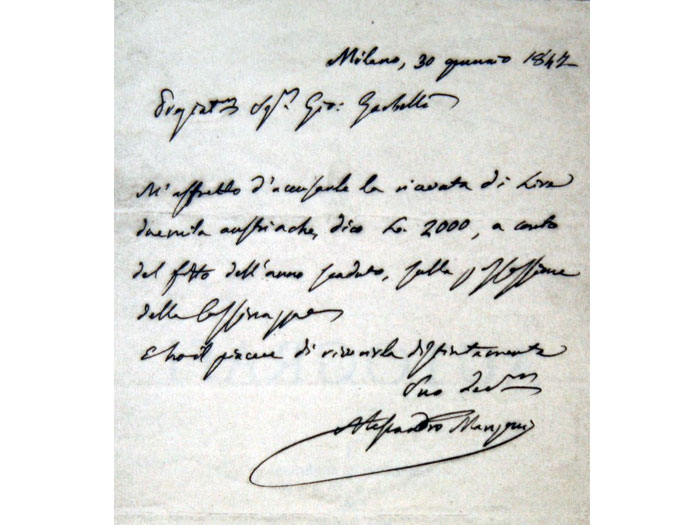 Milano, 30 gennaio 1847
Pregiat.mo Sig.r Gio: Garbelli
M'affretto d'accusarle la ricevuta di Lire
duemila austriache, dico L. 2000, a conto
del fitto dell'anno scaduto, sulla possessione
della
E ho il piacere di riverirla distintamente
Suo Dev.mo
Alessandro Manzoni